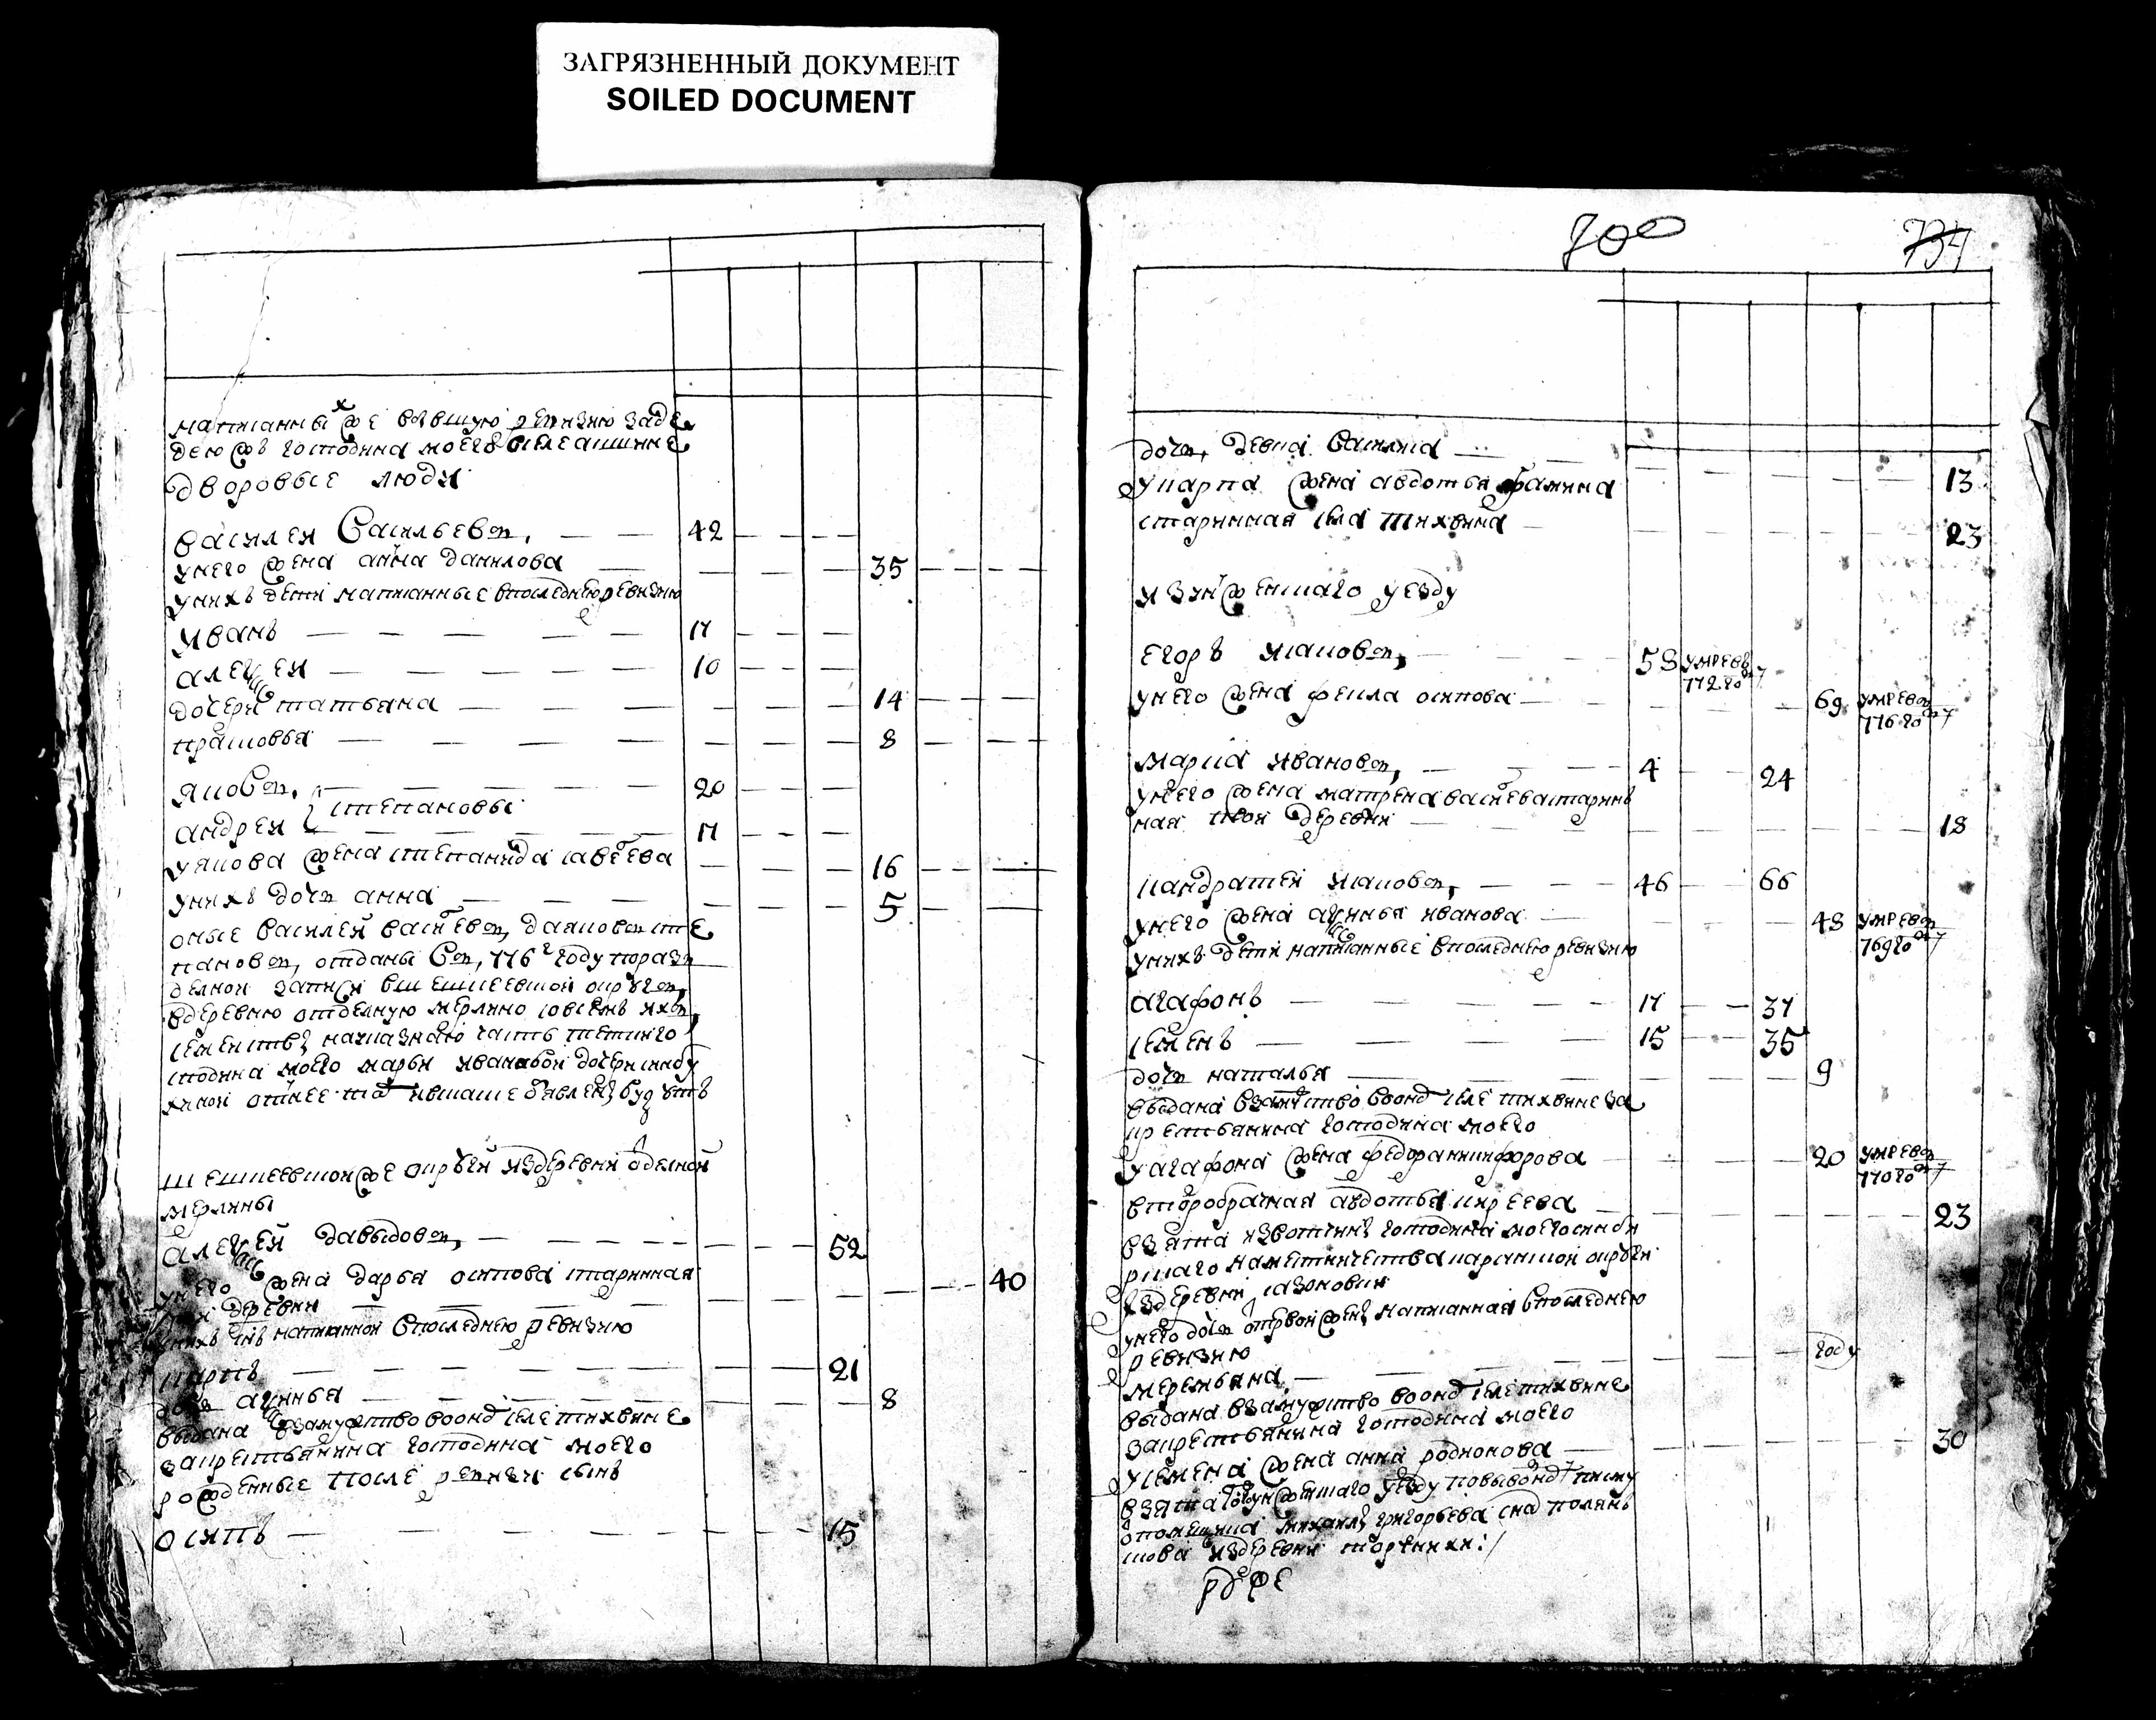 ЗАГРЯЗНЕННЫЙ ДОКУМЕНТ
SOILED DOCUMENT
написанных же въ бывшую ревизию за де
дею ж господина моего в селе
дворовые люди
василей васильевъ 42
у него жена анна данилова 35
у нихъ дети написанные в последнею ревизию
иванъ 17
алексей 10
дочери татьяна 14
прасковья 8
яковъ 20
степановы
андрей 17
у якова жена степанида савъеева 16
у нихъ дочь анна 5
оные василей васильевъ да яковъ сте
пановъ отданы въ 776 году по разъ
делной записи в шешкеевской округъ
в деревню отделную мерлино со всемъ ихъ
семействъ часть тетки го
сподина моего марьи ивановой дочери
будутъ
шешкеевской же округи из деревни оделной
мерлины
алексей давыдовъ 52
у него жена дарья осипова старинная 40
деревни
у нихъ сынъ написанной в последнею ревизию
карпъ 21
дочь аксинья 8
выдана в замужство в оном селе тихвине
за крестьянина господина моего
рожденные после ревизи сынъ
осипъ 15
700 734
дочь девка василиса 13
у карпа жена авдотья фамина
старинная села тихвина 23
из инженшаго уезду
егоръ исаковъ 58 умре въ 772 году
у него жена фекла осипова 69 умре въ 776 году
маркa ивановъ 4 24
у него жена матрена васильева старин
ная той деревни 18
кандратей исаковъ 46 66
у него жена аксинья иванова 48 умре въ 769 году
у нихъ дети написанные в последнею ревизию
агафонъ 17 37
семенъ 15 35
дочь наталья 9
выдана в замужство в оном селе тихвине за
крестьянина господина моего
у агафона жена федора никифорова 20 умре въ 770 году
второбрачная авдотья киреева 23
взята из вотчины господина моего симби
рскаго наместничества карсунской округи
из деревни сазоновки
у него дочь от первой жены написанная в последнею
ревизию году
меремьяна
выдана в замужство в оном селе тихвине
за крестьянина господина моего
у семена жена анна родионова 30
взята уезду по выводному писму
от помещика михаилы григорьева сна полян
скова из деревни